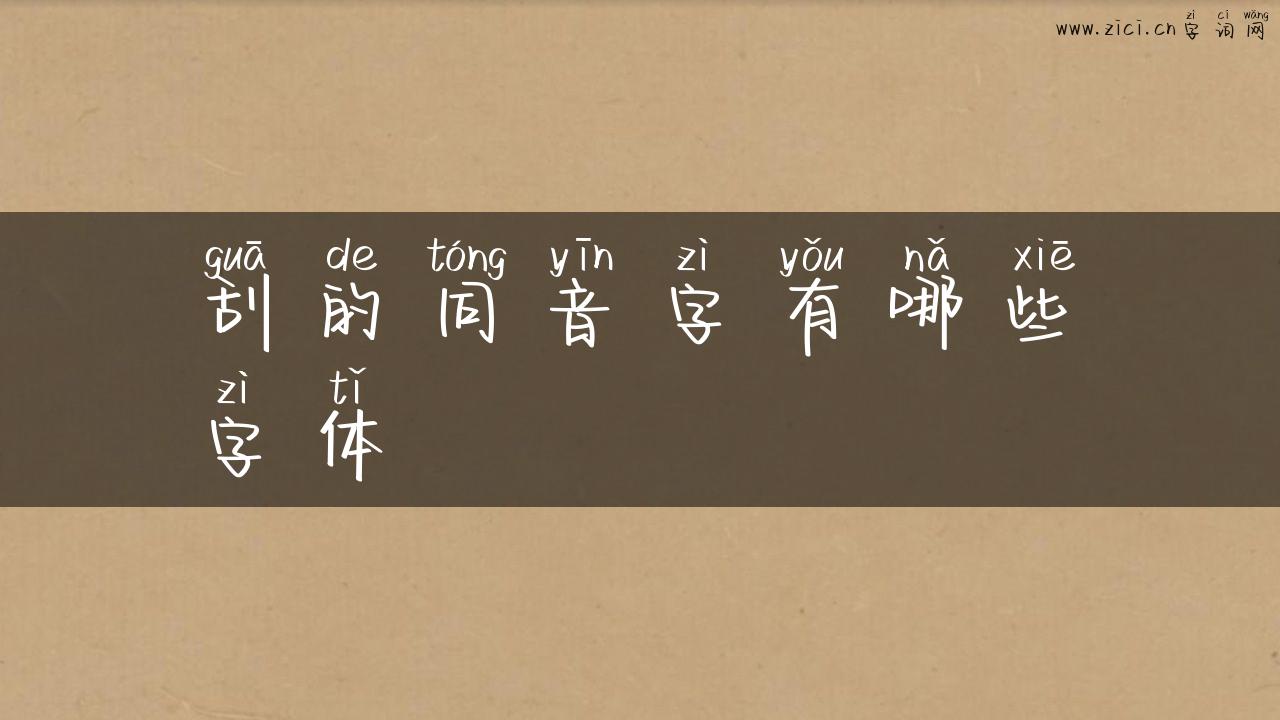 zì cí wǎng
www.zici.cn 字 词 网
guā de tóng yīn zì yǒu nǎ xiē
刮 的 同 音 字 有 哪 些
zì tǐ
字 体